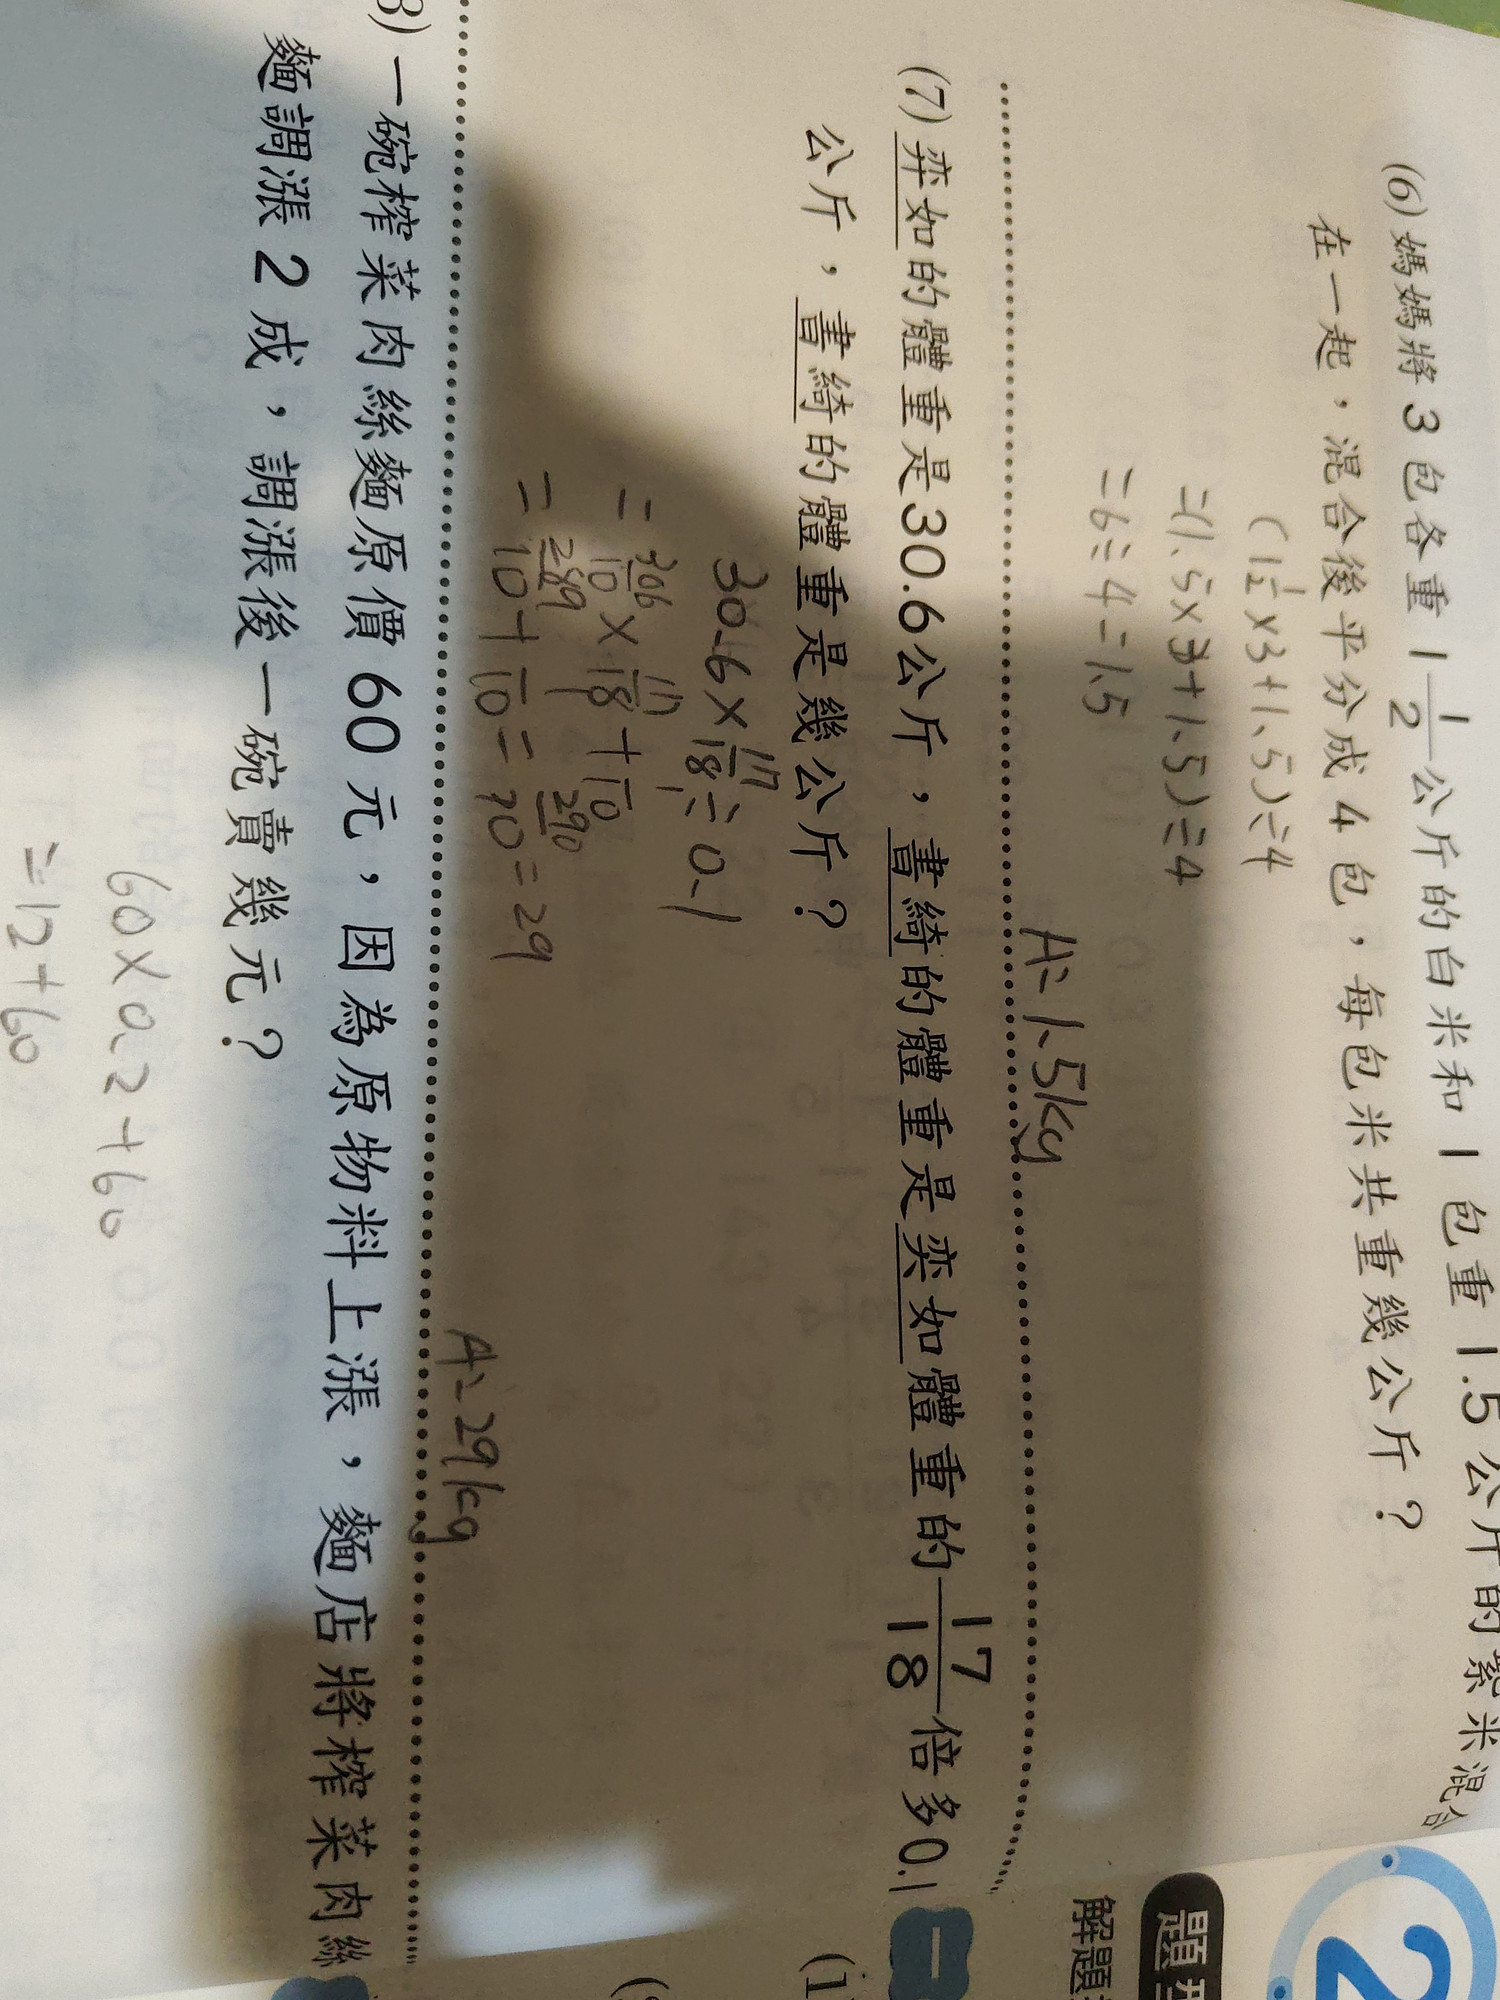 (6) 媽媽將 3 包各重 1 1/2 公斤的白米和 1 包重 1.5 公斤的紫米混合
在一起，混合後平分成 4 包，每包米共重幾公斤？
(1 1/2 × 3 + 1.5) ÷ 4
= (1.5 × 3 + 1.5) ÷ 4
= 6 ÷ 4 = 1.5
A: 1.5kg
(7) 弈如的體重是30.6公斤，書綺的體重是奕如體重的 17/18 倍多0.1
公斤，書綺的體重是幾公斤？
30.6 × 17/18 ÷ 0.1
= 306/10 × 17/18 + 1/10
= 289/10 + 1/10 = 290/10 = 29
A: 29kg
8) 一碗榨菜肉絲麵原價 60 元，因為原物料上漲，麵店將榨菜肉絲
麵調漲 2 成，調漲後一碗賣幾元？
60 × 0.2 + 60
= 12 + 60
2
題
解題
一
(1